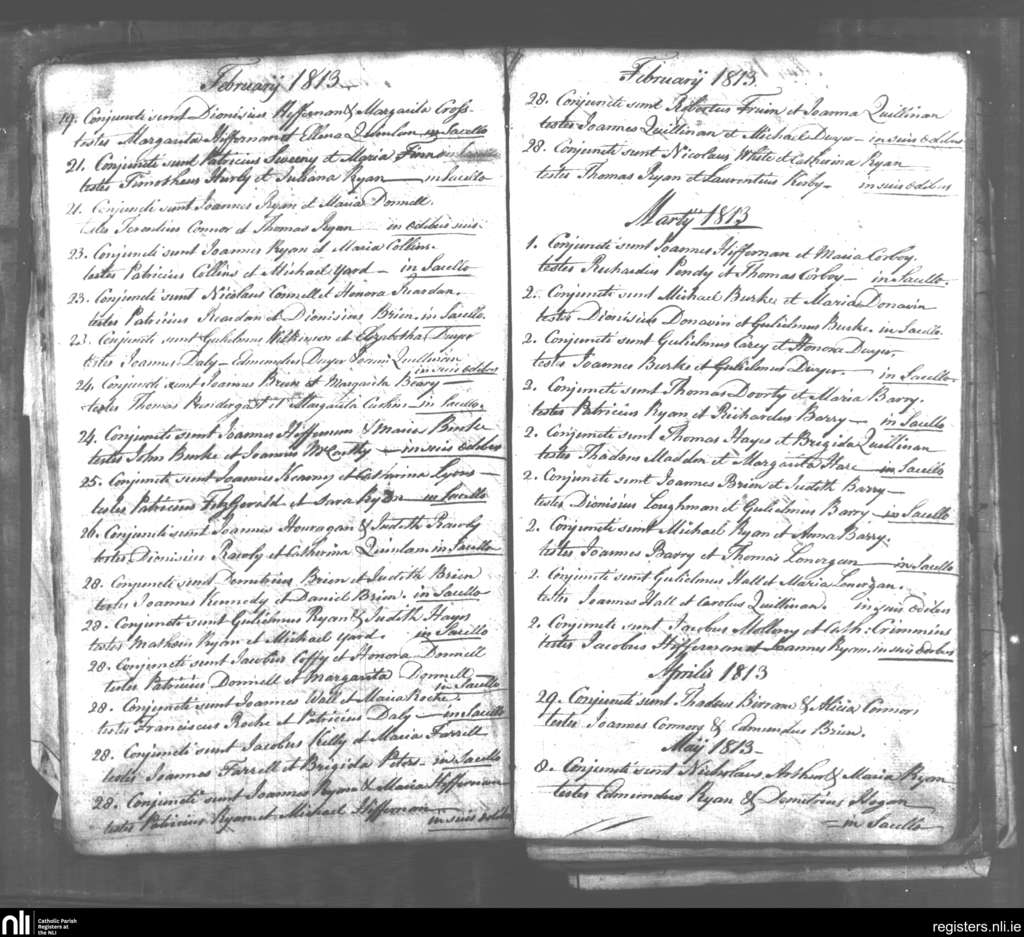 February 1813
19. Conjuncti sunt Dionisius Hyffernan & Margarita Cross.
testes Margarita Hiffernan et Ellena Quinlan in Sacello
21. Conjuncti sunt Patricius Sweeny et Maria
testes Timotheus Hurly et Juliana Ryan in Sacello
21. Conjuncti sunt Joannes Ryan et Maria Donnell.
Terentius Connor et Thomas Ryan in Œdibus suis.
23. Conjuncti sunt Joannes Ryan et Maria Collins.
testes Patricius Collins et Michael Yard - in Sacello
23. Conjuncti sunt Nicolaus Connell et Honora Reardan.
testes Patricius Reardon et Dionisius Brien. in Sacello.
23. Conjuncti sunt Gulielmus Wilkinson et Dwyer
testes Joannes Daly - Edmundus Dwyer Quillinan
in suis Œdibus
24. Conjuncti sunt Joannes Brien et Margarita Beary
testes Thomas Prendergast et Margarita in Sacello.
24. Conjuncti sunt Joannes Hiffernan & Maria Burke
testes John Burke et Joannes McCarthy - in suis Œdibus
25. Conjuncti sunt Joannes Kearny et Catherina Lyons
testes Patricius FitzGerald et Sara Ryan in Sacello
26. Conjuncti sunt Joannes Houragan & Judith Rawly
testes Dionisius Rawly et Catherina Quinlan in Sacello
28. Conjuncti sunt Demetrius Brien et Judith Brien
testes Joannes Kennedy et Daniel Brien. in Sacello
28. Conjuncti sunt Gulielmus Ryan & Judith Hayes
testes Matheus Ryan et Michael Yard. in Sacello
28. Conjuncti sunt Jacobus Coffy et Honora Donnell
testes Patricius Donnell et Margarita Donnell
in Sacello
28. Conjuncti sunt Joannes Wall et Maria Roche.
testes Franciscus Roche et Patricius Daly - in Sacello
28. Conjuncti sunt Jacobus Kelly et Maria Farrell
testes Joannes Farrell et Brigida Peters - in Sacello
28. Conjuncti sunt Joannes Ryan & Maria Hyffernan
testes Patricius Ryan et Michael Hiffernan
in suis Œdibus
February 1813
28. Conjuncti sunt Robertus Fruin et Joanna Quillinan
testes Joannes Quillinan et Michael Dwyer - in suis Œdibus
28. Conjuncti sunt Nicolaus White et Catherina Ryan
testes Thomas Ryan et Laurentius Kirby - in suis Œdibus
Martij 1813
1. Conjuncti sunt Joannes Hiffernan et Maria Corboy.
testes Richardus Pendy et Thomas Corboy - in Sacello.
2. Conjuncti sunt Michael Burke et Maria Donavin
testes Dionisius Donavin et Gulielmus Burke. in Sacello.
2. Conjuncti sunt Gulielmus Carey et Honora Dwyer.
testes Joannes Burke et Gulielmus Dwyer. - in Sacello.
2. Conjuncti sunt Thomas Doorty et Maria Barry.
testes Patricius Ryan et Richardus Barry - in Sacello
2. Conjuncti sunt Thomas Hayes et Brigida Quillinan
testes Thadeus Madden et Margarita Hare - in Sacello
2. Conjuncti sunt Joannes Brien et Judith Barry -
testes Dionisius Loughman et Gulielmus Barry - in Sacello
2. Conjuncti sunt Michael Ryan et Anna Barry.
testes Joannes Barry et Thomas Lonergan in Sacello
2. Conjuncti sunt Gulielmus Hall et Maria Lonergan.
testes Joannes Hall et Carolus Quillinan. in suis Œdibus
2. Conjuncti sunt Jacobus Mollony et Cath: Crimmins
testes Jacobus Hiffernan et Joannes Ryan. in suis Œdibus
Aprilis 1813
29. Conjuncti sunt Thadeus & Alicia Connors
testes Joannes Connors & Edmundus Brien.
Maij 1813 -
8. Conjuncti sunt Nicholaus Arthur & Maria Ryan
testes Edmundus Ryan & Demetrius Hogan
in Sacello
nli
Catholic Parish
Registers at
the NLI
registers.nli.ie